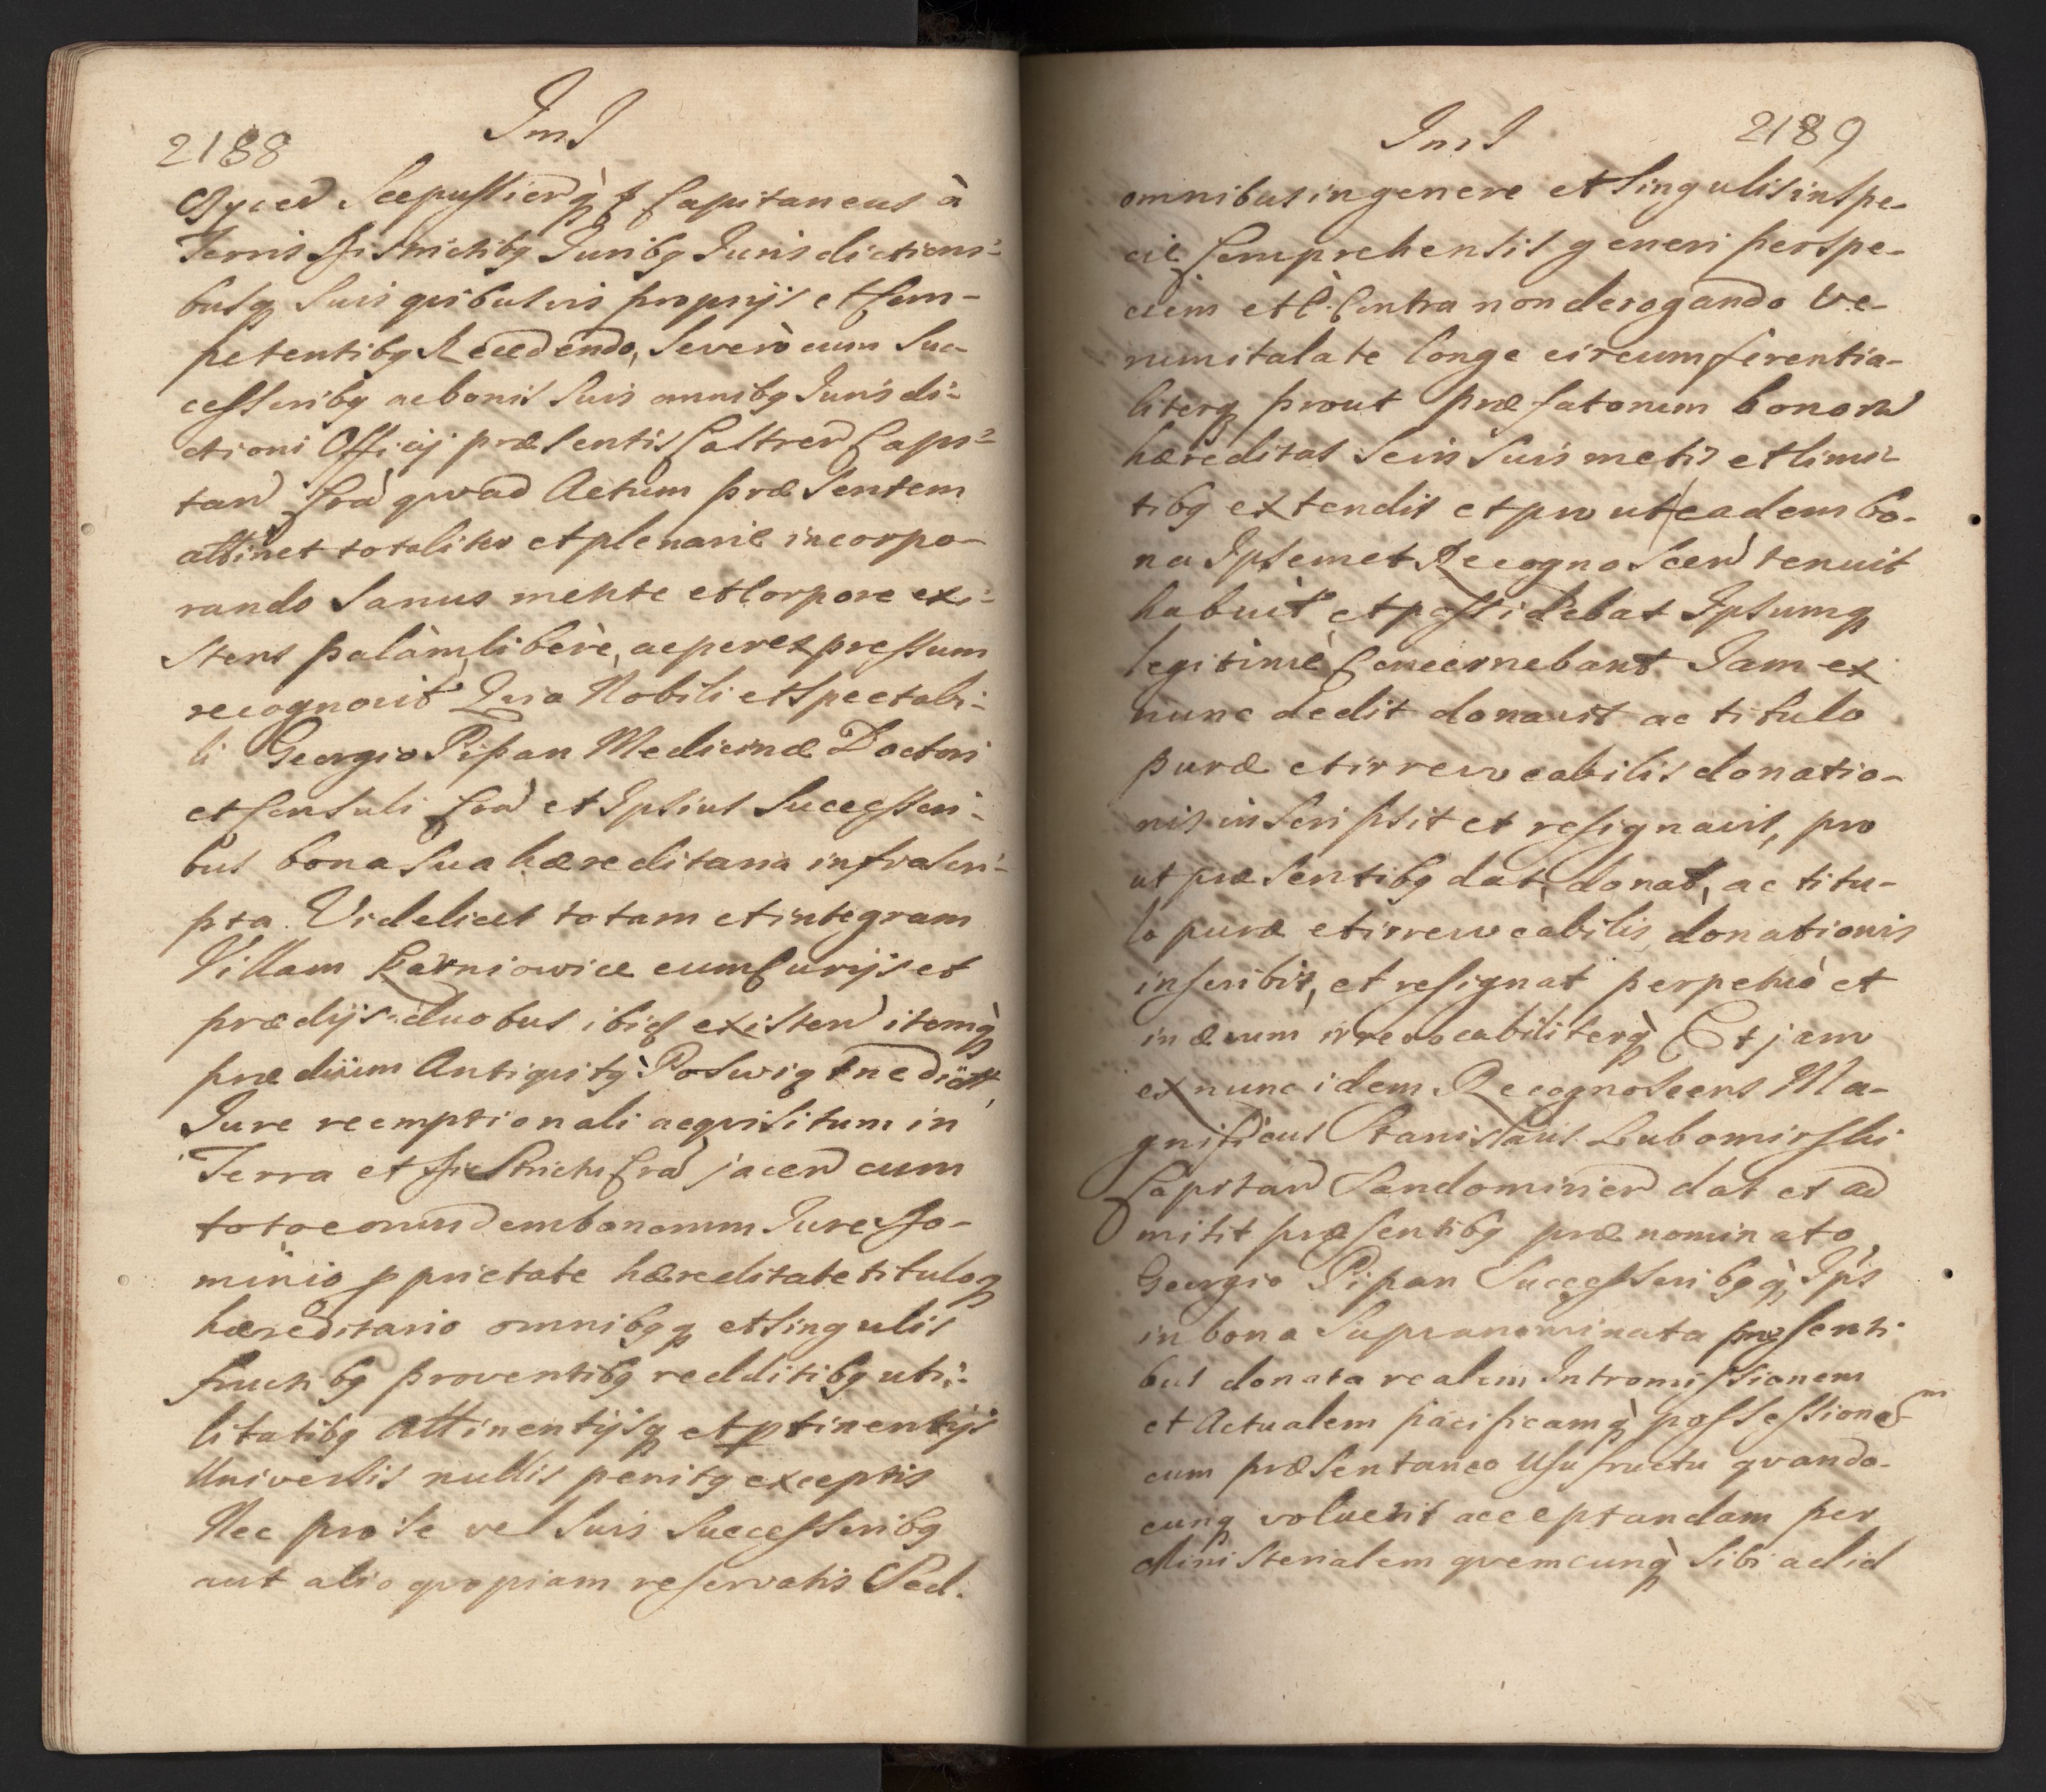 2188
JmJ
Scepussienq̀ Capitaneus à
Terris Districtibq Juribq Jurisdictioni-
busq suis quibusvis proprijs et Com-
petentibq Recedendo, Severò cum Suc-
cessoribq ac bonis Suis omnibq Jurisdi-
ctioni Officij præsentis Castren Capi-
tan Cra quoad Actum præsentem
attinet totaliter et plenarie incorpo-
rando Sanus mente et Corpore exi-
stens palàm, liberè, ac per expressum
recognovit Quia Nobili et Spectabi-
li Georgio Pipan Medicinæ Doctori
et Consuli Cra et Ipsius Successori-
bus bona Sua hæreditaria infrascri-
pta. Videlicet totam et integram
Villam Karniowice cum Curijs et
prædijs duobus ibid existen itemq̀
prædium Antiquitq
Jure reemptionali acquisitum in
Terra et Districtu Cra jacen cum
toto eorundem bonorum Jure Do-
minio pprietate hæreditate tituloq
hæreditario omnibqq et Singulis
fructibq proventibq redditibq uti-
litatibq Attinentijsq et ptinentijs
Universis nullis penitq exceptis
Nec pro Se vel Suis Successoribq
aut alio quopiam reservatis Sed.
JmJ
2189
omnibus in genere et Singulis in Spe-
cie Comprehensis generi per Spe-
ciem et è Contra non derogando Ve-
rum ita late longe circumferentia-
literq prout præfatorum bonorū
hæreditas Se in Suis metis et limi-
tibq extendit et pro ut eadem bo-
na Ipsemet Recognoscen tenuit
habuit et possidebat Ipsumq
legitimè Concernebant Jam ex
nunc dedit donavit ac titulo
puræ et irrevocabilis donatio-
nis inscripsit et resignavit, pro
ut præsentibq dat, donat, ac titu-
lo puræ et irrevocabilis donationis
inscribit, et resignat perpetuò et
in ævum irrevocabiliterq̀ Et jam
ex nunc idem Recognoscens Ma-
gnificus Stanislaus Lubomirski
Capitan Sandomirien dat et ad
mitit præsentibq prænominato
Georgio Pipan Successoribqq̀ Ips
in bona Supranominata præsenti
bus donata realem Intromissionem
et Actualem pacificamq̀ possessionem
cum præsentaneo Usufructu quando-
cunq voluerit acceptandam per
Ministerialem quemcunq̀ Sibi ad id